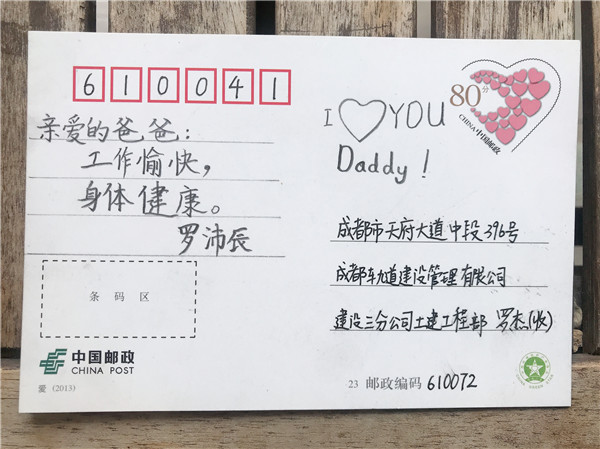 610041
亲爱的爸爸:
工作愉快,
身体健康。
罗沛辰
条码区
中国邮政
CHINA POST
爱 (2013)
80分
CHINA 中国邮政
I ♡ YOU
Daddy!
成都市天府大道中段396号
成都轨道建设管理有限公司
建设三分公司土建工程部 罗杰(收)
23 邮政编码 610072